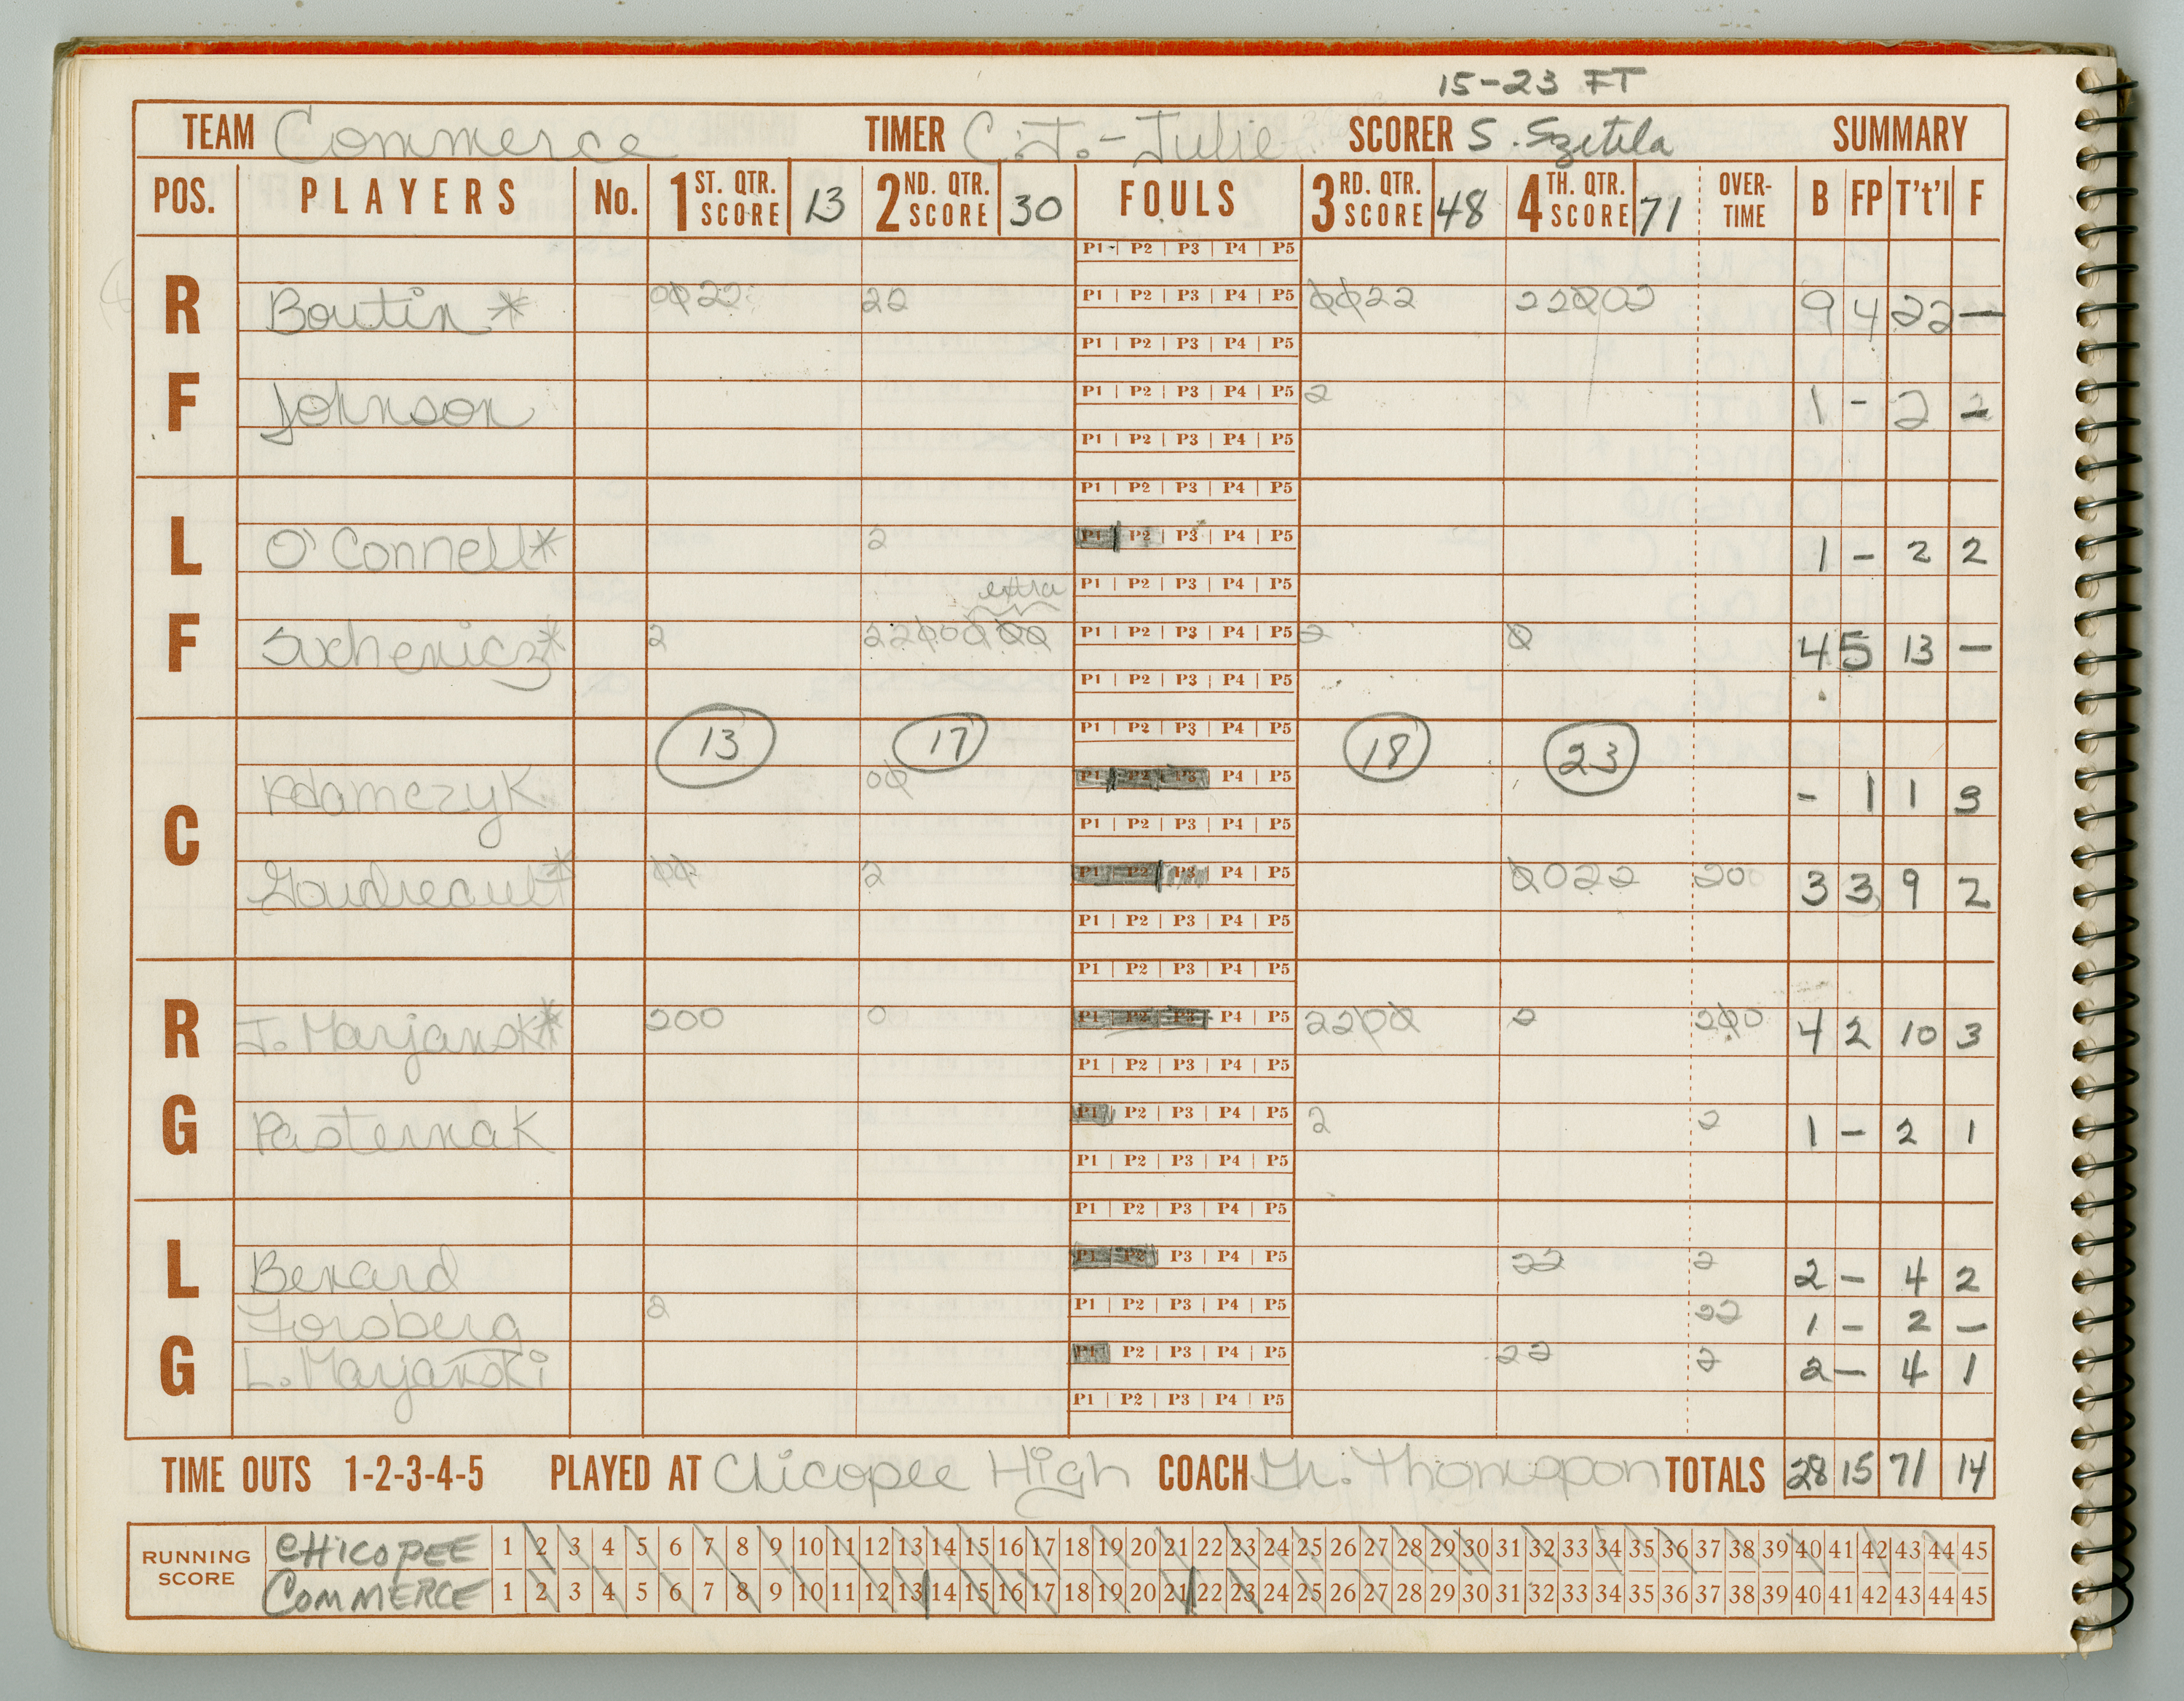 15-23 FT
TEAM Commerce TIMER C.J.-Julie SCORER S. Szetela SUMMARY
POS. PLAYERS No. 1 ST. QTR. SCORE 13 2 ND. QTR. SCORE 30 FOULS 3 RD. QTR. SCORE 48 4 TH. QTR. SCORE 71 OVER-TIME B FP T't'l F
P1 P2 P3 P4 P5
RF Boutin * 0022 22 P1 P2 P3 P4 P5 0022 22002 9 4 22 —
P1 P2 P3 P4 P5
Johnson P1 P2 P3 P4 P5 2 1 - 2 2
P1 P2 P3 P4 P5
P1 P2 P3 P4 P5
LF O'Connell * 2 P1 P2 P3 P4 P5 1 - 2 2
extra P1 P2 P3 P4 P5
2 2200000 P1 P2 P3 P4 P5 2 0 4 5 13 —
P1 P2 P3 P4 P5
13 17 P1 P2 P3 P4 P5 18 23
C Adamczyk 00 P1 P2 P3 P4 P5 - 1 1 3
P1 P2 P3 P4 P5
Goudreault * 00 2 P1 P2 P3 P4 P5 0022 200 3 3 9 2
P1 P2 P3 P4 P5
P1 P2 P3 P4 P5
RG J. Marjanski * 200 0 P1 P2 P3 P4 P5 2200 2 200 4 2 10 3
P1 P2 P3 P4 P5
Pasternak P1 P2 P3 P4 P5 2 2 1 - 2 1
P1 P2 P3 P4 P5
P1 P2 P3 P4 P5
LG Benard P1 P2 P3 P4 P5 22 2 2 - 4 2
Forsberg 2 P1 P2 P3 P4 P5 22 1 - 2 —
L. Marjanski P1 P2 P3 P4 P5 22 2 2 — 4 1
P1 P2 P3 P4 P5
TIME OUTS 1-2-3-4-5 PLAYED AT Chicopee High COACH Mr. Thompson TOTALS 28 15 71 14
RUNNING SCORE
CHICOPEE 1 2 3 4 5 6 7 8 9 10 11 12 13 14 15 16 17 18 19 20 21 22 23 24 25 26 27 28 29 30 31 32 33 34 35 36 37 38 39 40 41 42 43 44 45
COMMERCE 1 2 3 4 5 6 7 8 9 10 11 12 13 14 15 16 17 18 19 20 21 22 23 24 25 26 27 28 29 30 31 32 33 34 35 36 37 38 39 40 41 42 43 44 45